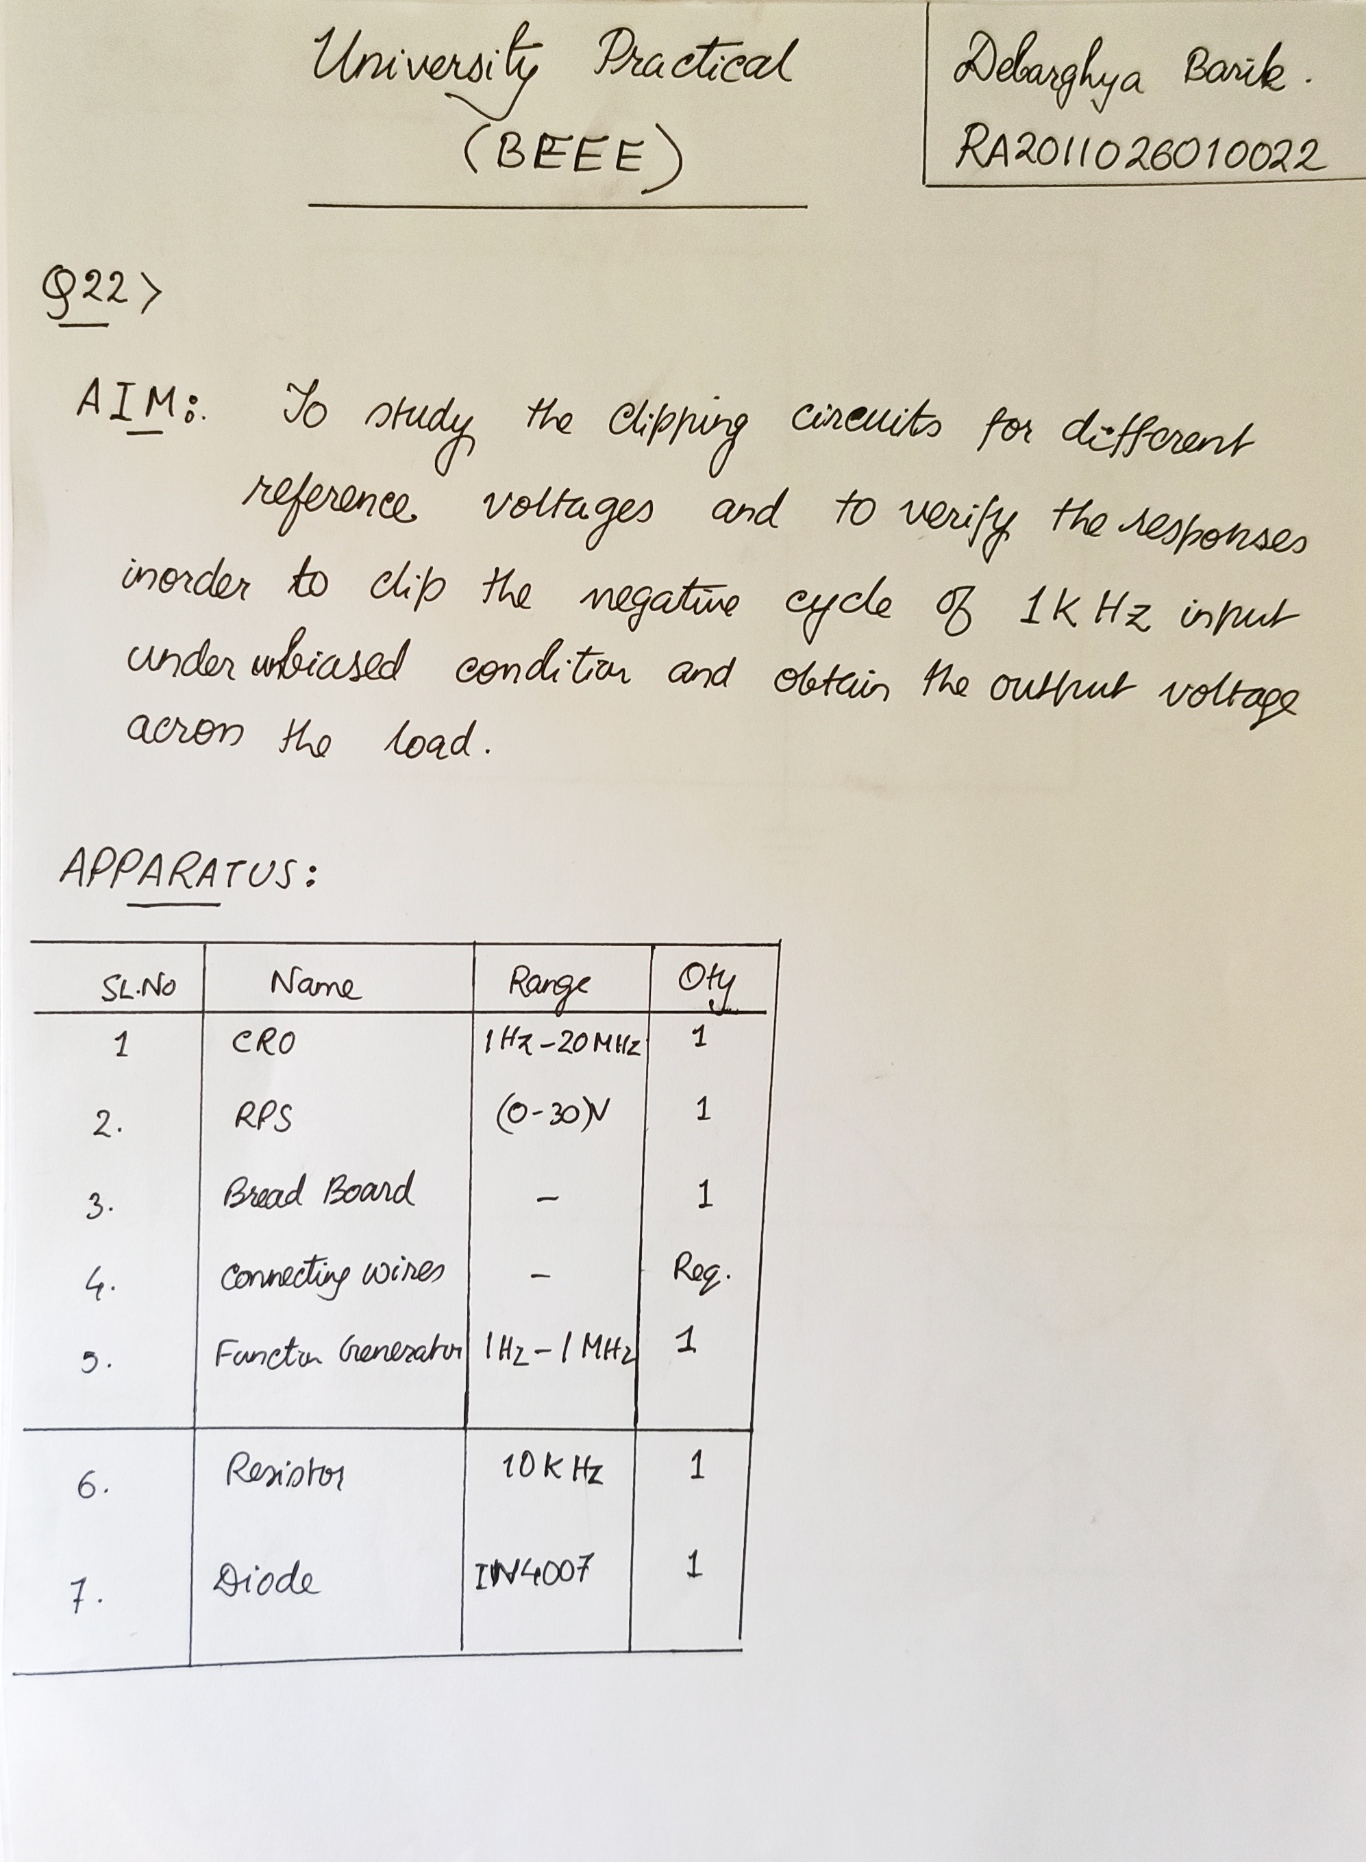 University Practical
(BEEE)
Debarghya Barik.
RA2011026010022
Q22>
AIM:. To study the clipping circuits for different
reference voltages and to verify the responses
inorder to clip the negative cycle of 1K Hz input
under unbiased condition and obtain the output voltage
across the load.
APPARATUS:
SL.No Name Range Qty
1 CRO 1Hz-20MHz 1
2. RPS (0-30)V 1
3. Bread Board - 1
4. Connecting wires - Req.
5. Function Generator 1Hz-1MHz 1
6. Resistor 10K Hz 1
7. Diode IN4007 1